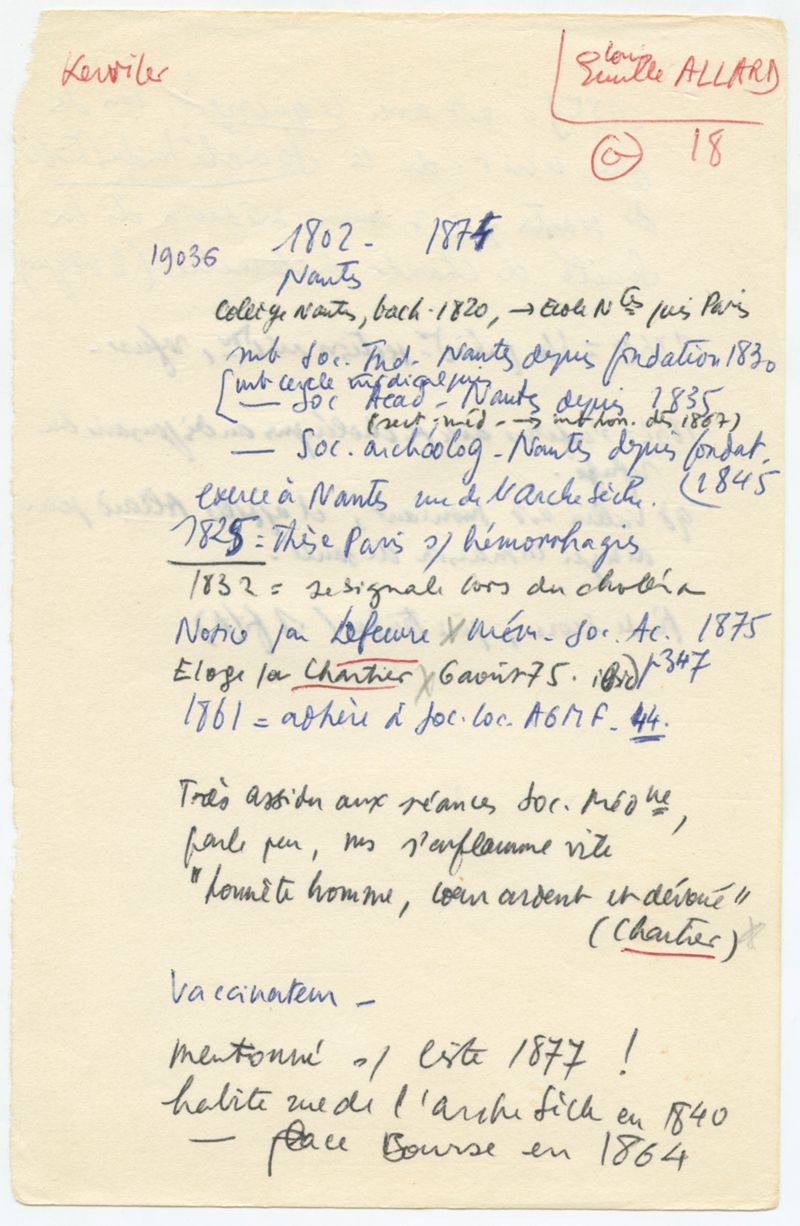 Kerviler
Louis
Emile ALLARD
18
1802 - 1874
19036
Nantes
Collège Nantes, bach. 1820, → Ecole Ntes puis Paris
mb Soc. Ind. Nantes depuis fondation 1830
mb cercle médical puis
— Soc Acad - Nantes depuis 1835
(sect. méd - → mb hon. dès 1867)
— Soc. archéolog - Nantes depuis fondat.
1845
exerce à Nantes rue de l'Arche Sèche.
1825 = Thèse Paris s/ hémorrhagies
1832 = se signale lors du choléra
Notice par Lefeuvre x Mém. Soc. Ac. 1875
Eloge par Chartier x 6 août 75. ibid p 347
1861 = adhère à Soc. loc. AGMF - 44.
Très assidu aux séances Soc. Médne,
parle peu, ms s'enflamme vite
"honnête homme, cœur ardent et dévoué"
(Chartier) x
Vaccinateur -
mentionné s/ liste 1877 !
habite rue de l'arche Sèch en 1840
— place Bourse en 1864